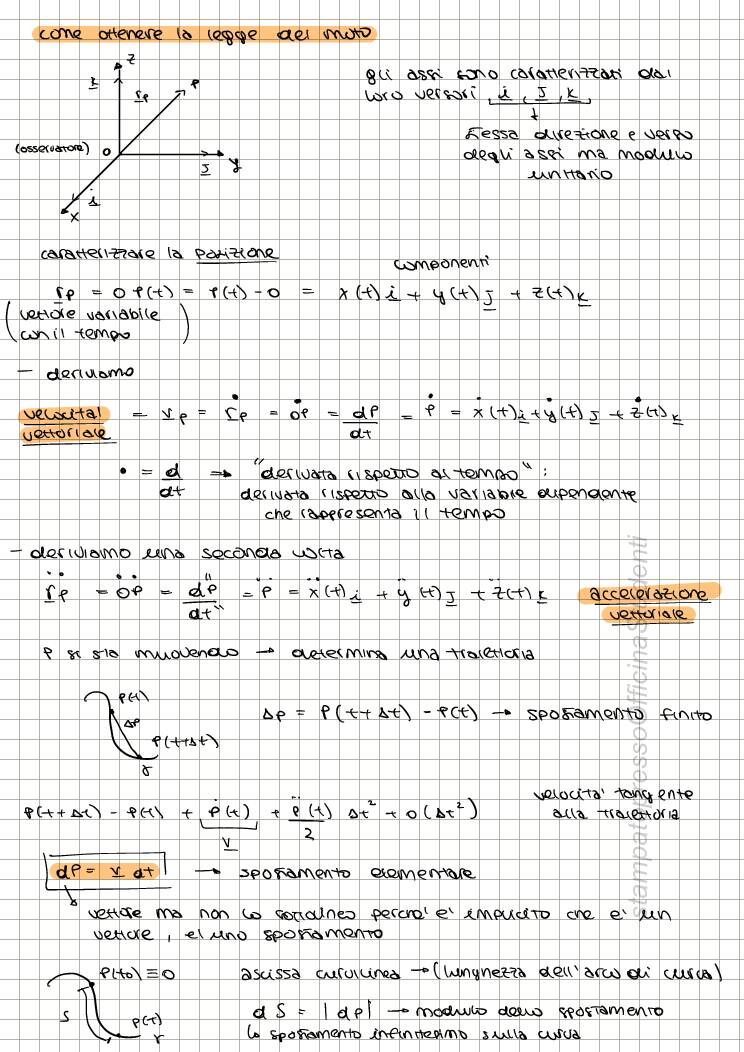 come ottenere la legge del moto
z
k
rp
P
(osservatore) O
J
y
i
x
gli assi sono caratterizzati dai
loro versori i, J, k
stessa direzione e verso
degli assi ma modulo
unitario
caratterizzare la posizione
componenti
rp = OP(t) = P(t) - O = x(t) i + y(t) J + z(t) k
(vettore variabile
con il tempo)
- deriviamo
velocita' vettoriale = vp = ṙp = ȮP = dP/dt = Ṗ = ẋ(t) i + ẏ(t) J + ż(t) k
• = d/dt → "derivata rispetto al tempo":
derivata rispetto alla variabile dipendente
che rappresenta il tempo
- deriviamo una seconda volta
r̈p = ÖP = d"P/dt" = P̈ = ẍ(t) i + ÿ(t) J + z̈(t) k accelerazione vettoriale
P si sta muovendo → determina una traiettoria
P(t)
ΔP
P(t+Δt)
γ
ΔP = P(t+Δt) - P(t) → spostamento finito
velocita' tangente
alla traiettoria
P(t+Δt) - P(t) + Ṗ(t) + P̈(t)/2 Δt² + o(Δt²)
v
dP = v dt → spostamento elementare
vettore ma non lo sottolineo perche' e' implicito che e' un
vettore, e' uno spostamento
P(t0) ≡ O
S
P(t)
γ
ascissa curvilinea → (lunghezza dell'arco di curva)
dS = |dP| → modulo dello spostamento
lo spostamento infinitesimo sulla curva
stampatopressoOfficinaStudenti